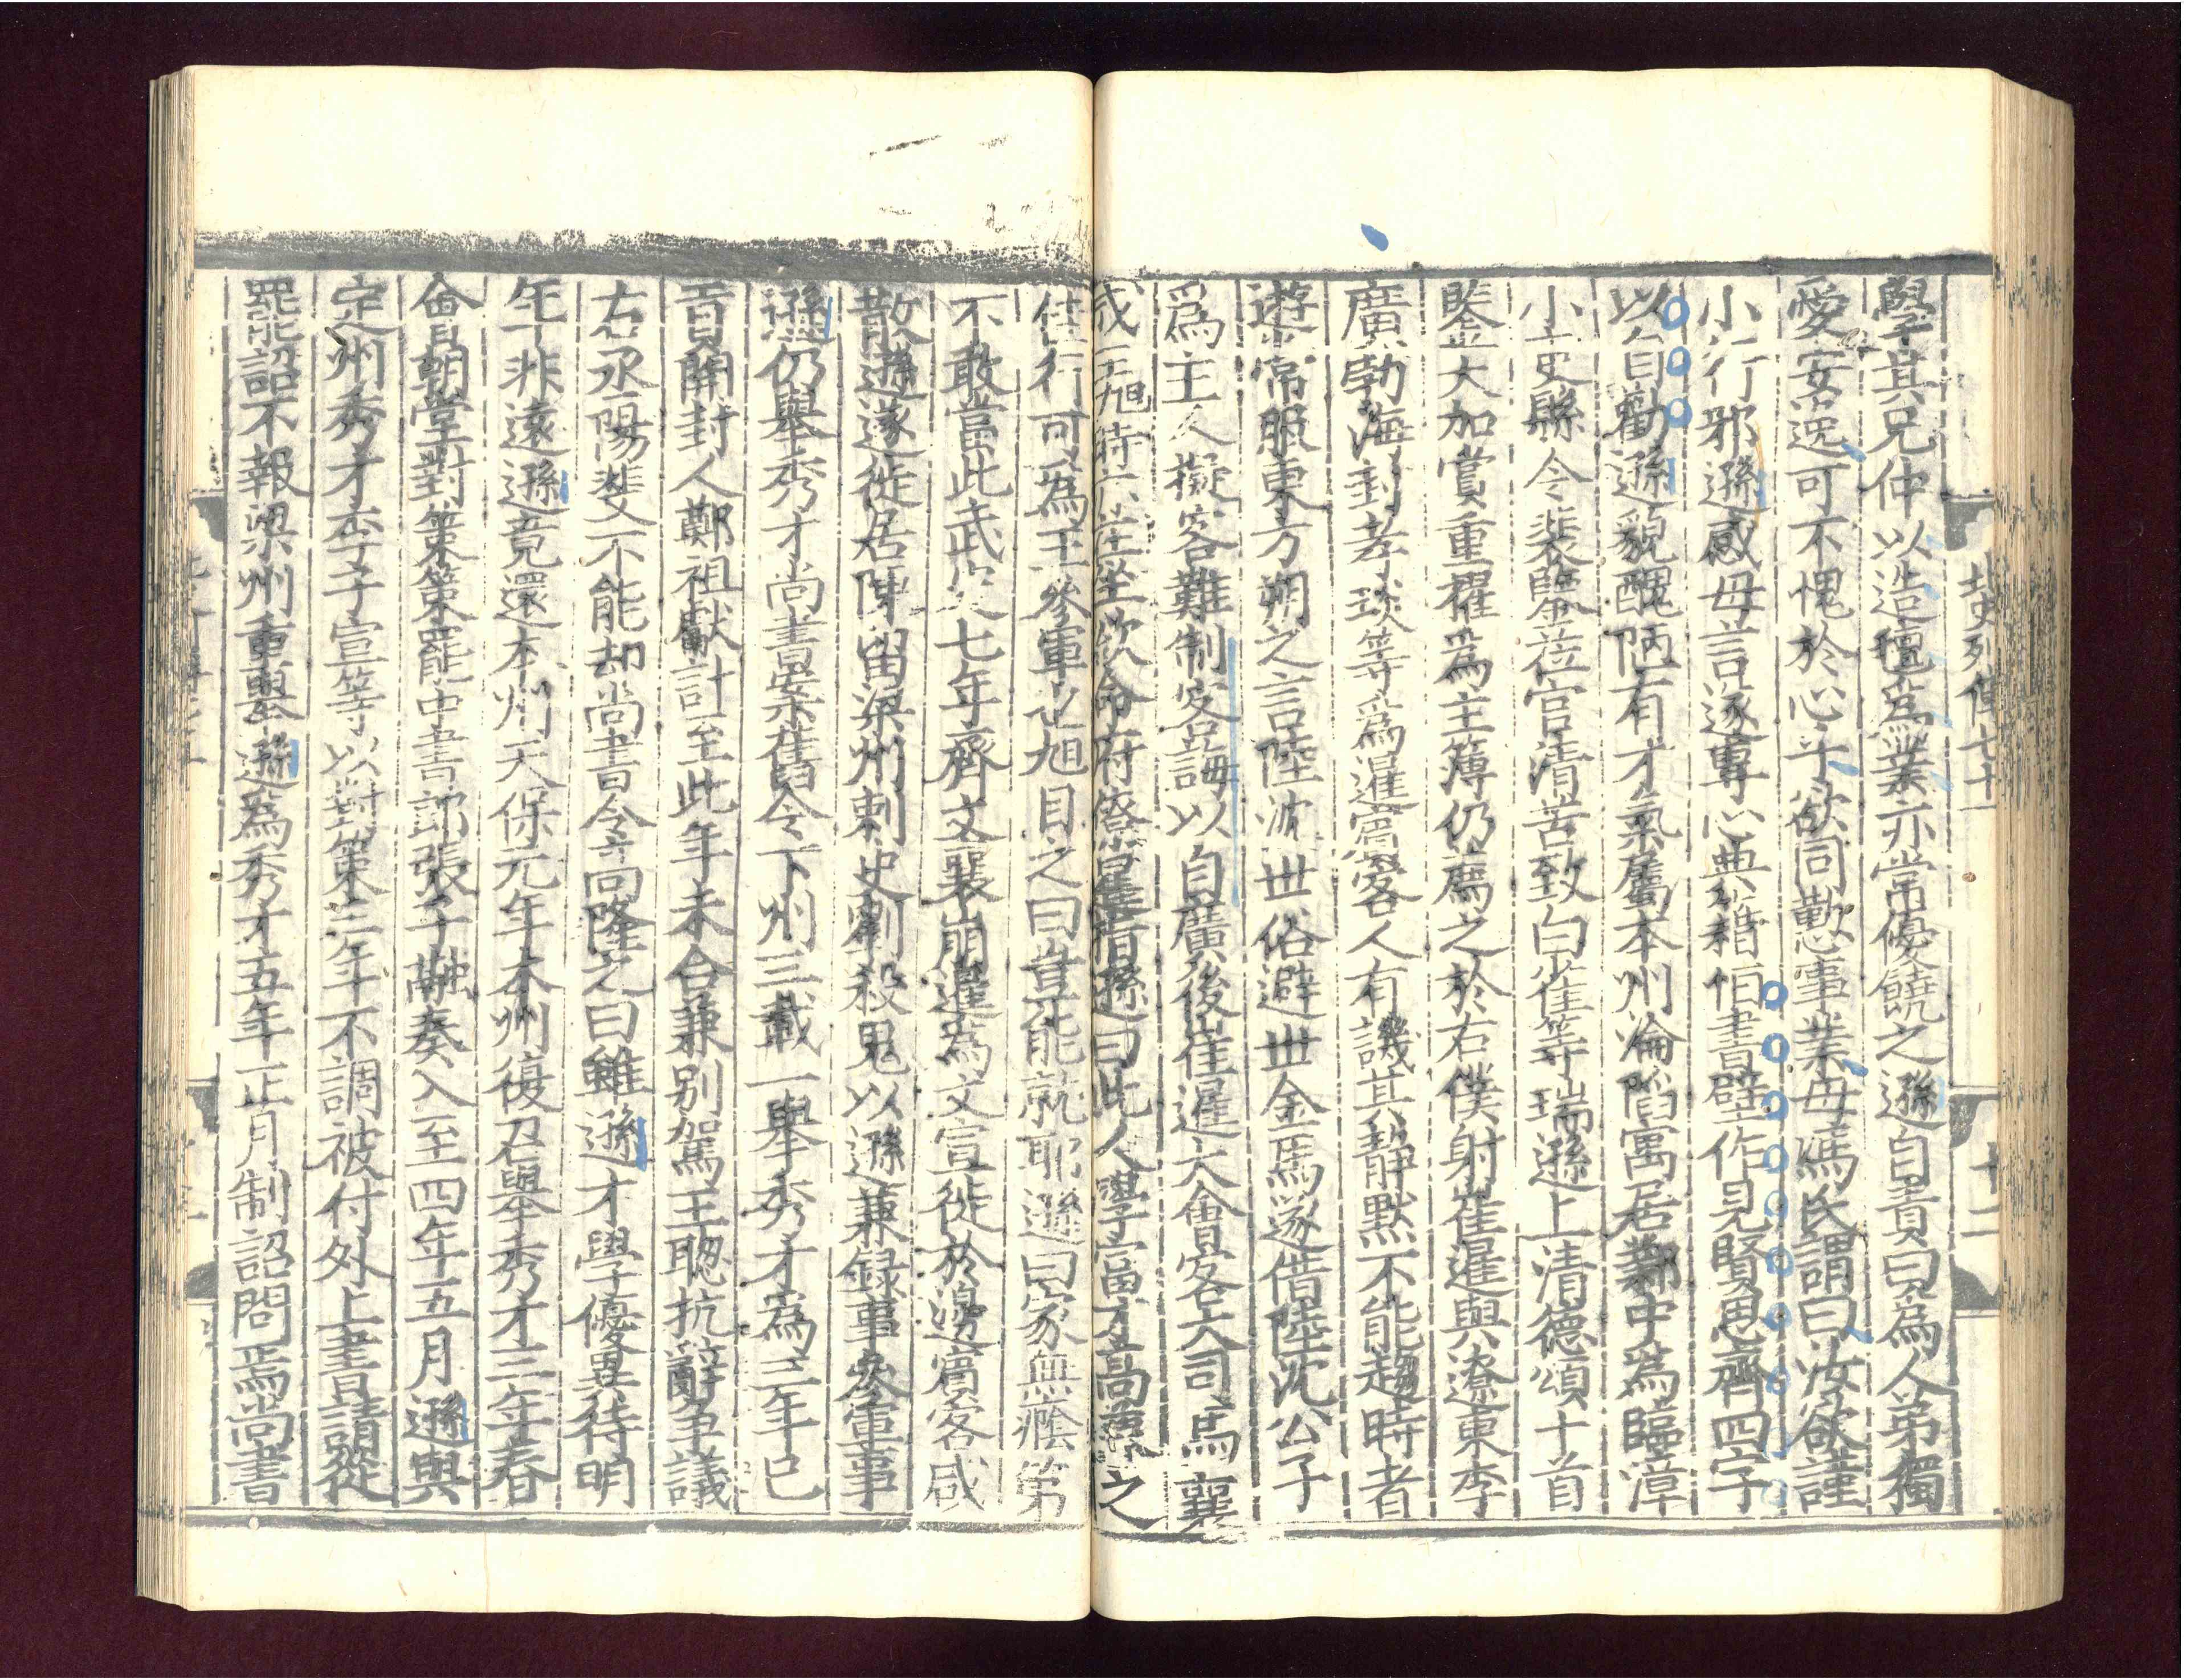 北史列傳七十一
十二
學其兄仲以造氊爲業亦常優饒之遜自責曰爲人弟獨
愛安逸可不愧於心乎欲同勤事業母馮氏謂曰汝欲謹
小行邪遜感母言遂專心典籍恒書壁作見賢思齊四字
以自勸遜貌醜陋有才氣屬本州淪陷寓居鄴中爲臨漳
小吏縣令裴鑒莅官清苦致白雀等瑞遜上清德頌十首
鑒大加賞重擢爲主簿仍薦之於右僕射崔暹與遼東李
廣勃海封孝琰等爲暹賓客人有譏其靜默不能趨時者
遜常服東方朔之言陸沈世俗避世金馬遂借陸沈公子
爲主人擬客難制客誨以自廣後崔暹大會客大司馬襄
城王旭時亦在坐欲命府僚暹指遜曰此人學富才高兼之
佳行可爲王參軍也旭目之曰豈能就耶遜曰家無癊第
不敢當此武定七年齊文襄崩暹爲文宣徙於邊賓客咸
散遜遂徙居陳留梁州刺史劉殺鬼以遜兼録事參軍事
遜仍舉秀才尚書案舊令下州三載一舉秀才爲三年已
貢開封人鄭祖獻計至此年未合兼别駕王聰抗辭爭議
右丞陽斐不能却尚書令高隆之曰雖遜才學優異待明
年非遠遜竟還本州天保元年本州復召舉秀才三年春
會朝堂對策策罷中書郎張子融奏入至四年五月遜與
定州秀才李子宣等以對策三年不調被付外上書請從
罷詔不報梁州重舉遜爲秀才五年正月制詔問焉尚書